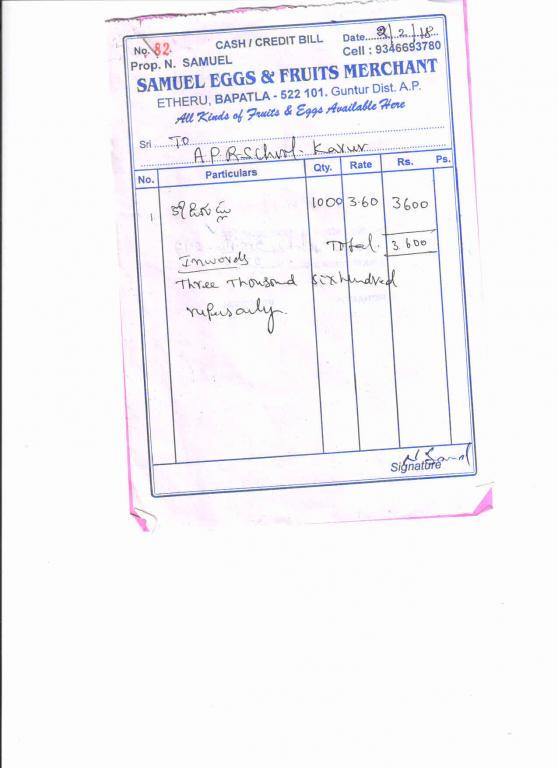 CASH / CREDIT BILL
No. 82.
Date 2/2/18
Prop. N. SAMUEL
Cell : 9346693780
SAMUEL EGGS & FRUITS MERCHANT
ETHERU, BAPATLA - 522 101. Guntur Dist. A.P.
All Kinds of Fruits & Eggs Available Here
Sri To
A.P.R.School. Karur
No. Particulars Qty. Rate Rs. Ps.
1. కోడిగుడ్లు 1000 3.60 3600
Total. 3.600
Inwords
Three Thousand Six hundred
rupes only.
Signature